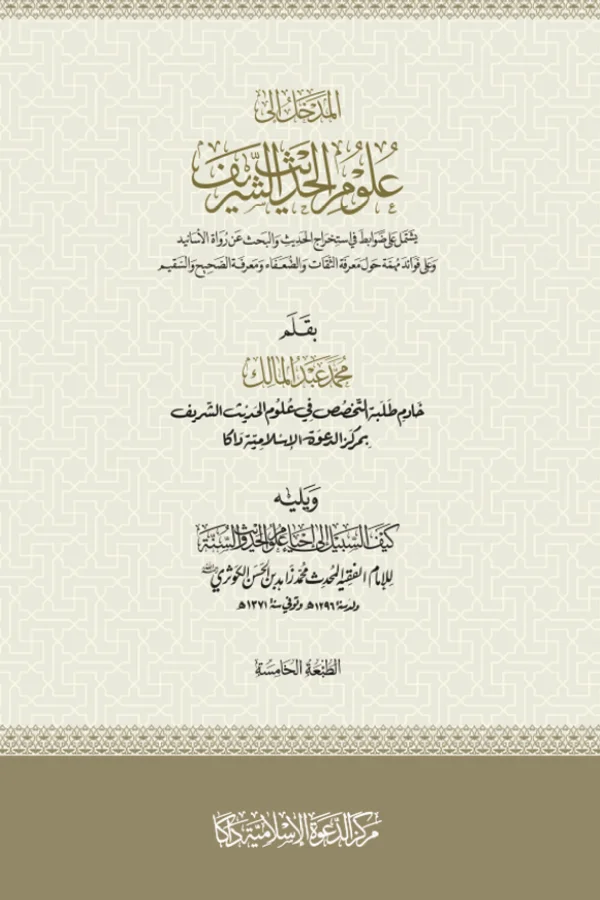 المَدْخَلُ إلى
عُلُومِ الحَدِيثِ الشَّرِيفِ
يشتمل على ضوابط في استخراج الحديث والبحث عن رواة الأسانيد
وعلى فوائد مهمة حول معرفة الثقات والضعفاء ومعرفة الصحيح والسقيم
بقلم
محمد عبد المالك
خادم طلبة التخصص في علوم الحديث الشريف
بمركز الدعوة الإسلامية داكا
ويليه
كيف السبيل إلى إحياء علوم الحديث والسنة
للإمام الفقيه المحدث محمد زاهد بن الحسن الكوثري رحمه الله
ولد سنة ١٢٩٦ھ وتوفي سنة ١٣٧١ھ
الطبعة الخامسة
مركز الدعوة الإسلامية داكا